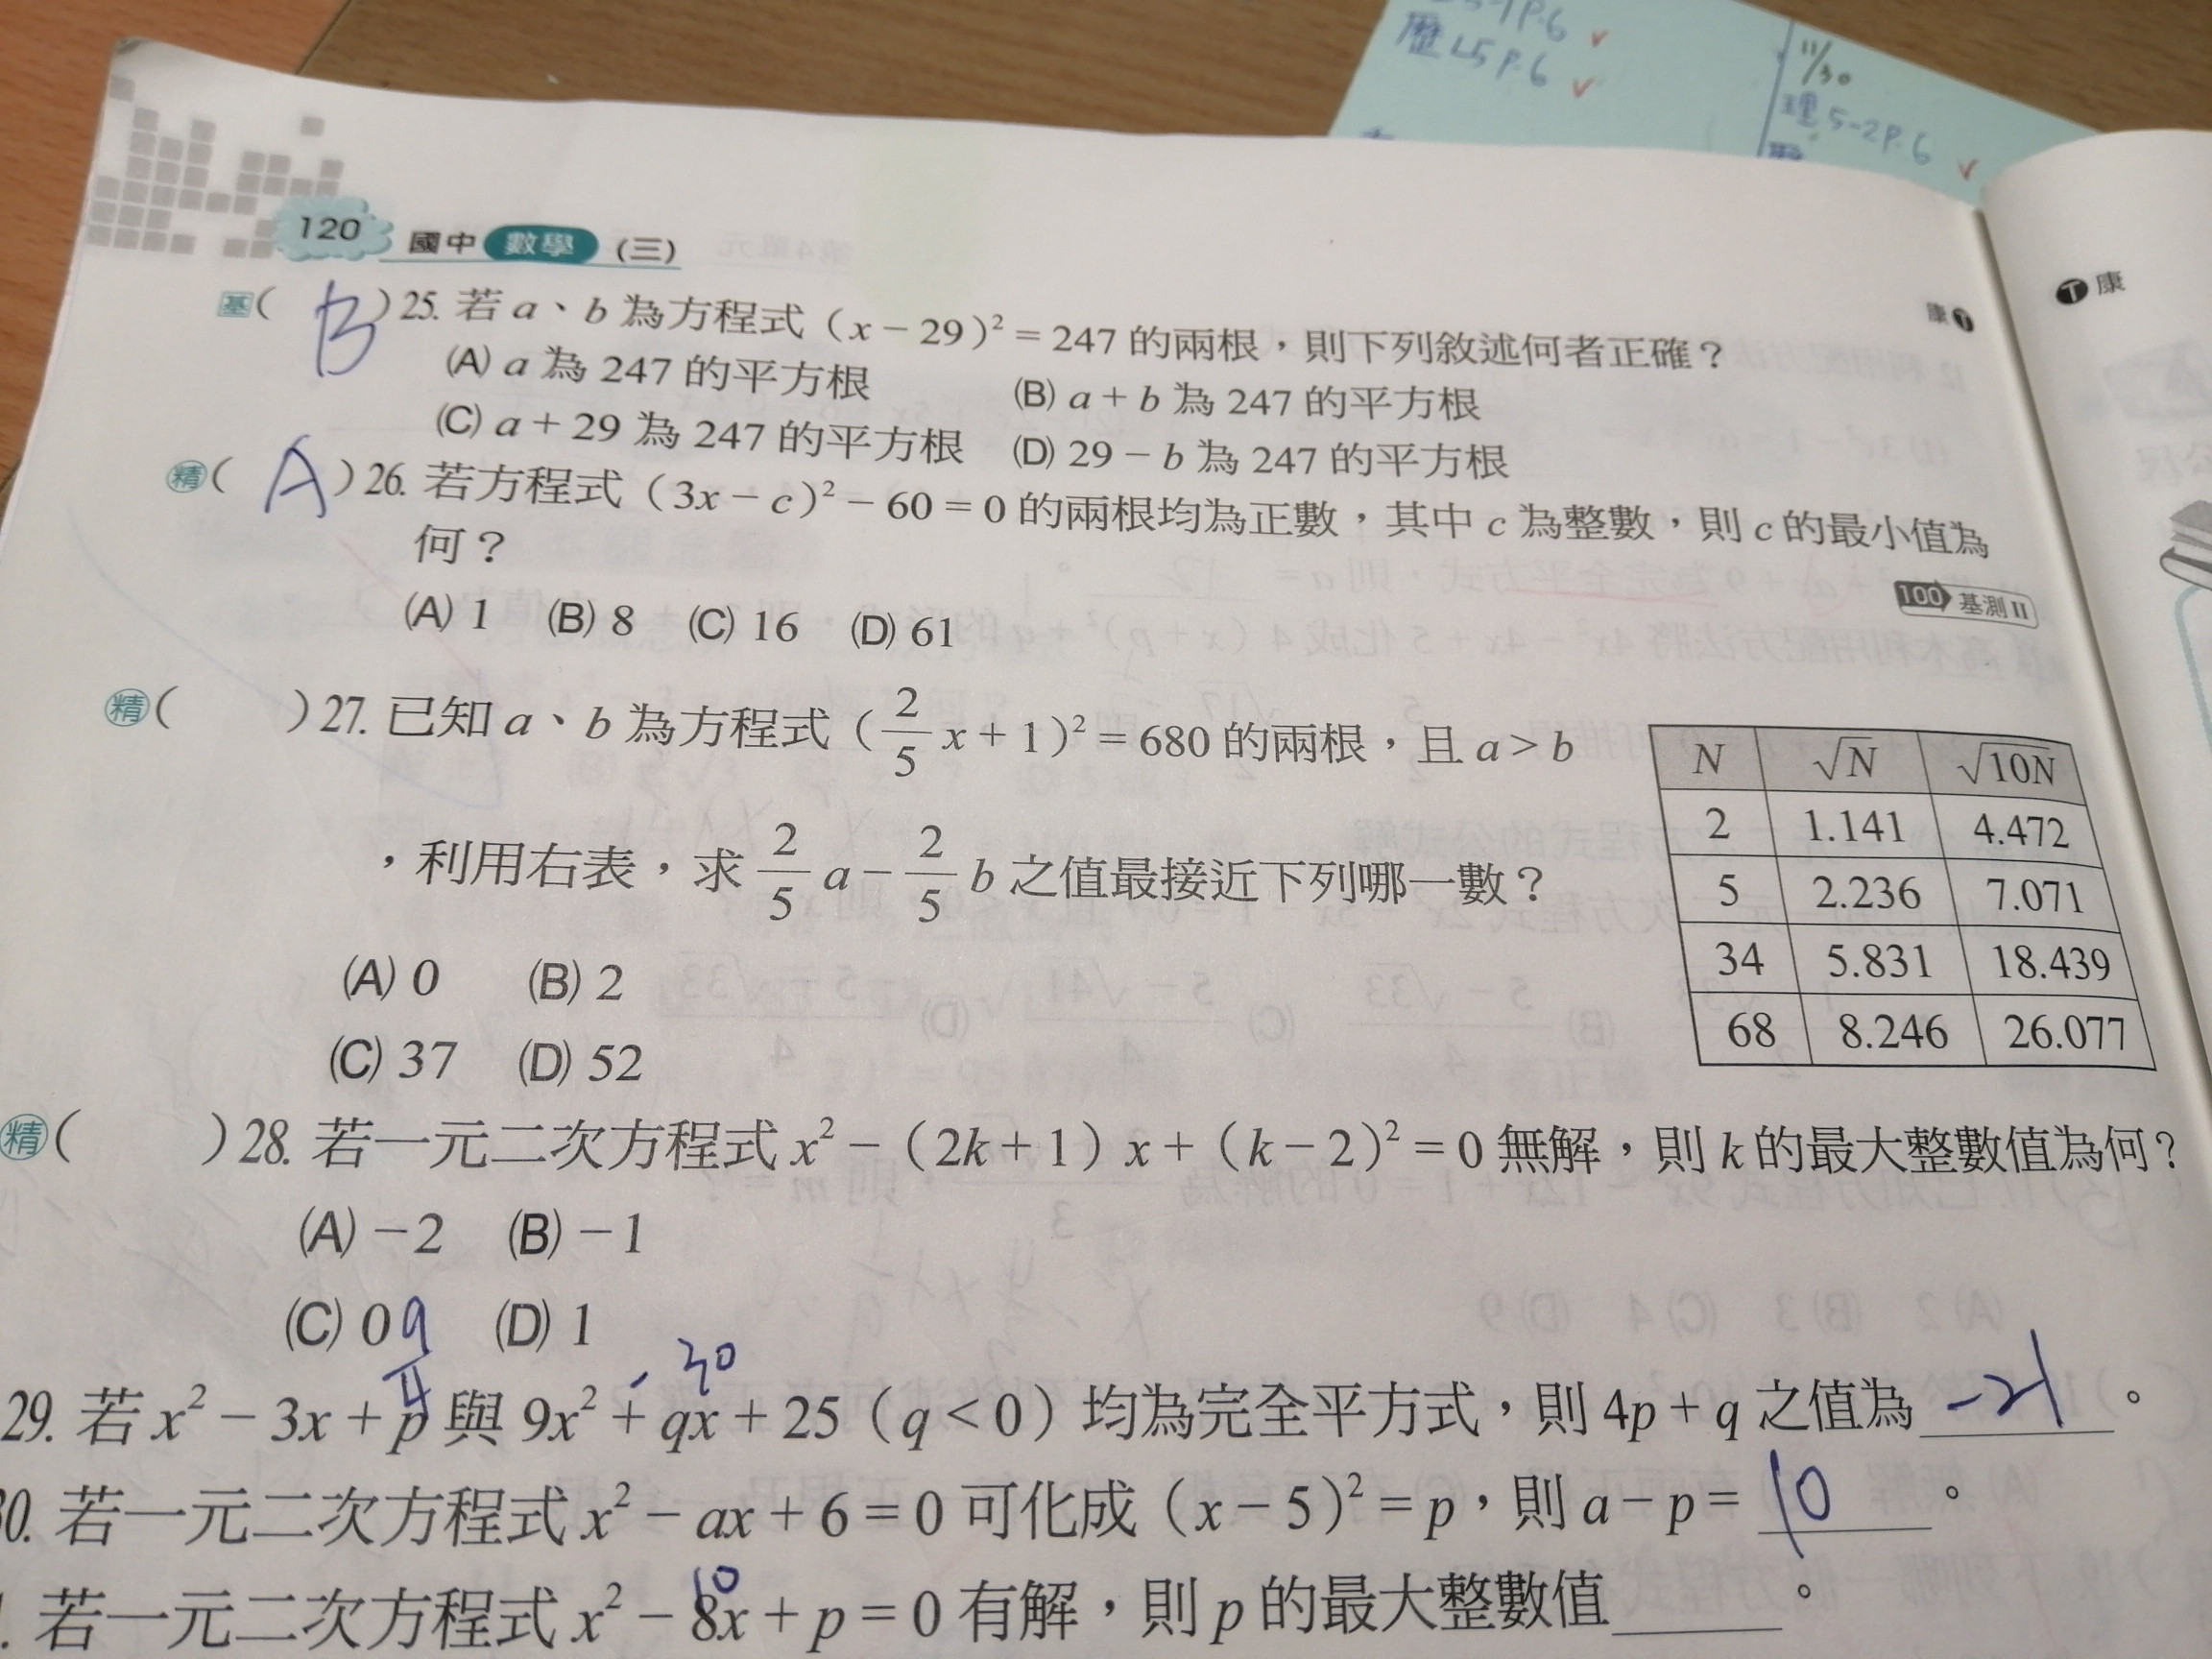 歷L5 P.6
11/30
理5-2P.6
120 國中 數學 (三)
康
康
基( B )25. 若 a、b 為方程式（x－29）²＝247 的兩根，則下列敘述何者正確？
(A) a 為 247 的平方根 (B) a＋b 為 247 的平方根
(C) a＋29 為 247 的平方根 (D) 29－b 為 247 的平方根
精( A )26. 若方程式（3x－c）²－60＝0 的兩根均為正數，其中 c 為整數，則 c 的最小值為
何？
100 基測 II
(A) 1 (B) 8 (C) 16 (D) 61
精( )27. 已知 a、b 為方程式（2/5 x＋1）²＝680 的兩根，且 a＞b
，利用右表，求 2/5 a－2/5 b 之值最接近下列哪一數？
(A) 0 (B) 2
(C) 37 (D) 52
N √N √10N
2 1.141 4.472
5 2.236 7.071
34 5.831 18.439
68 8.246 26.077
精( )28. 若一元二次方程式 x²－（2k＋1）x＋（k－2）²＝0 無解，則 k 的最大整數值為何？
(A)－2 (B)－1
(C) 0 (D) 1
9/4 -30
29. 若 x²－3x＋p 與 9x²＋qx＋25（q＜0）均為完全平方式，則 4p＋q 之值為 -21 。
30. 若一元二次方程式 x²－ax＋6＝0 可化成（x－5）²＝p，則 a－p＝ 10 。
10
. 若一元二次方程式 x²－8x＋p＝0 有解，則 p 的最大整數值 。